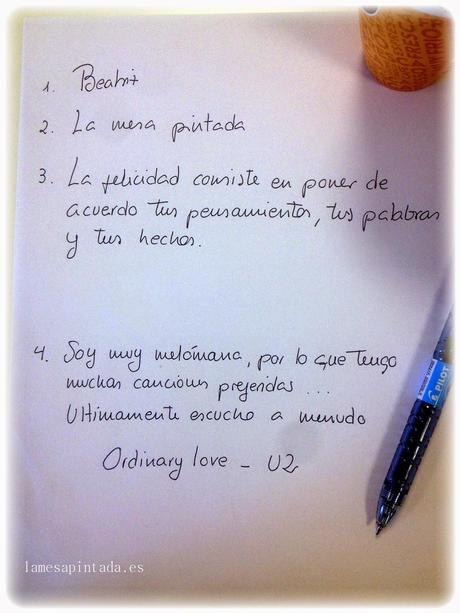 1. Beatriz
2. La mesa pintada
3. La felicidad consiste en poner de
acuerdo tus pensamientos, tus palabras
y tus hechos.
4. Soy muy melómana, por lo que tengo
muchas canciones preferidas ...
Ultimamente escucho a menudo
Ordinary love - U2
PILOT
lamesapintada.es